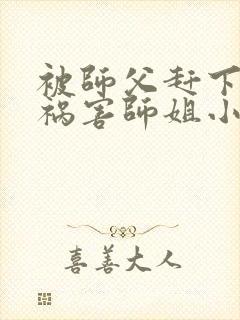 被師父赶下
祸害師姐小
喜善大人